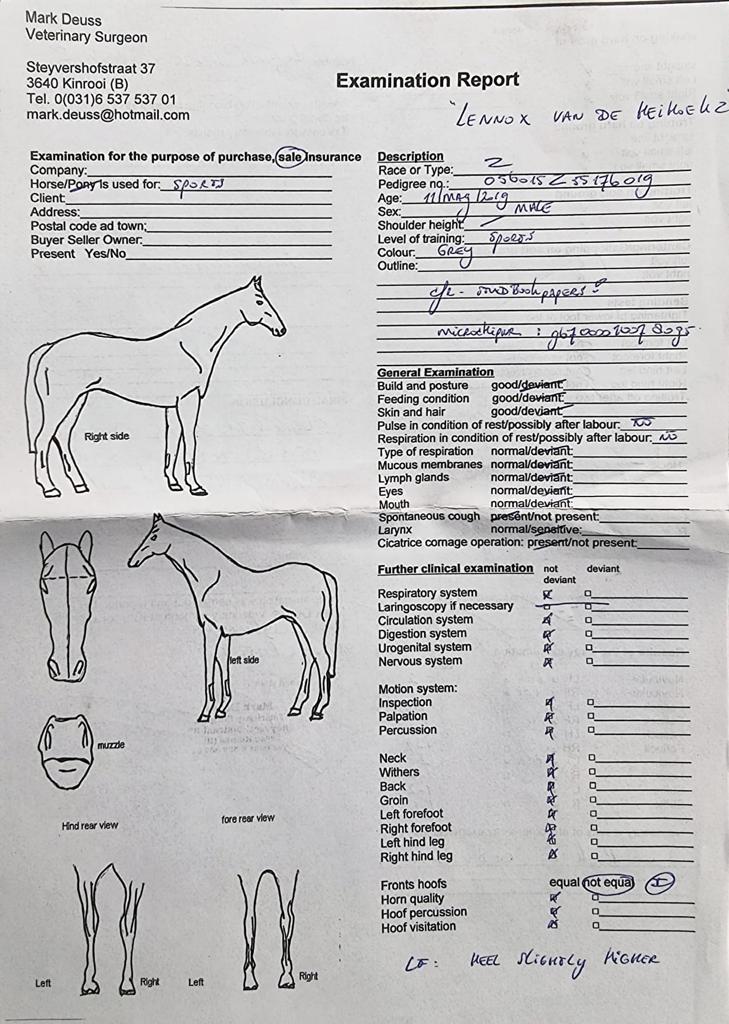 Mark Deuss
Veterinary Surgeon
Steyvershofstraat 37
3640 Kinrooi (B)
Tel. 0(031)6 537 537 01
mark.deuss@hotmail.com
Examination Report
"LENNOX VAN DE HEIHOEK Z
Examination for the purpose of purchase, sale Insurance
Company:
Horse/Pony is used for: SPORTS
Client:
Address:
Postal code ad town:
Buyer Seller Owner:
Present Yes/No
Right side
left side
muzzle
Hind rear view
fore rear view
Left
Right
Left
Right
Description
Race or Type: Z
Pedigree no.: 056015Z55176019
Age: 11/MAY/2019
Sex: MALE
Shoulder height:
Level of training: SPORTS
Colour: GREY
Outline:
c/r - STUDBOOKPAPERS
microchipnr :
General Examination
Build and posture good/deviant:
Feeding condition good/deviant:
Skin and hair good/deviant:
Pulse in condition of rest/possibly after labour: NO
Respiration in condition of rest/possibly after labour: NO
Type of respiration normal/deviant:
Mucous membranes normal/deviant:
Lymph glands normal/deviant:
Eyes normal/deviant:
Mouth normal/deviant:
Spontaneous cough present/not present:
Larynx normal/sensitive:
Cicatrice cornage operation: present/not present:
Further clinical examination not deviant deviant
Respiratory system
Laringoscopy if necessary
Circulation system
Digestion system
Urogenital system
Nervous system
Motion system:
Inspection
Palpation
Percussion
Neck
Withers
Back
Groin
Left forefoot
Right forefoot
Left hind leg
Right hind leg
Fronts hoofs equal not equal I
Horn quality
Hoof percussion
Hoof visitation
LF: HEEL SLIGHTLY HIGHER